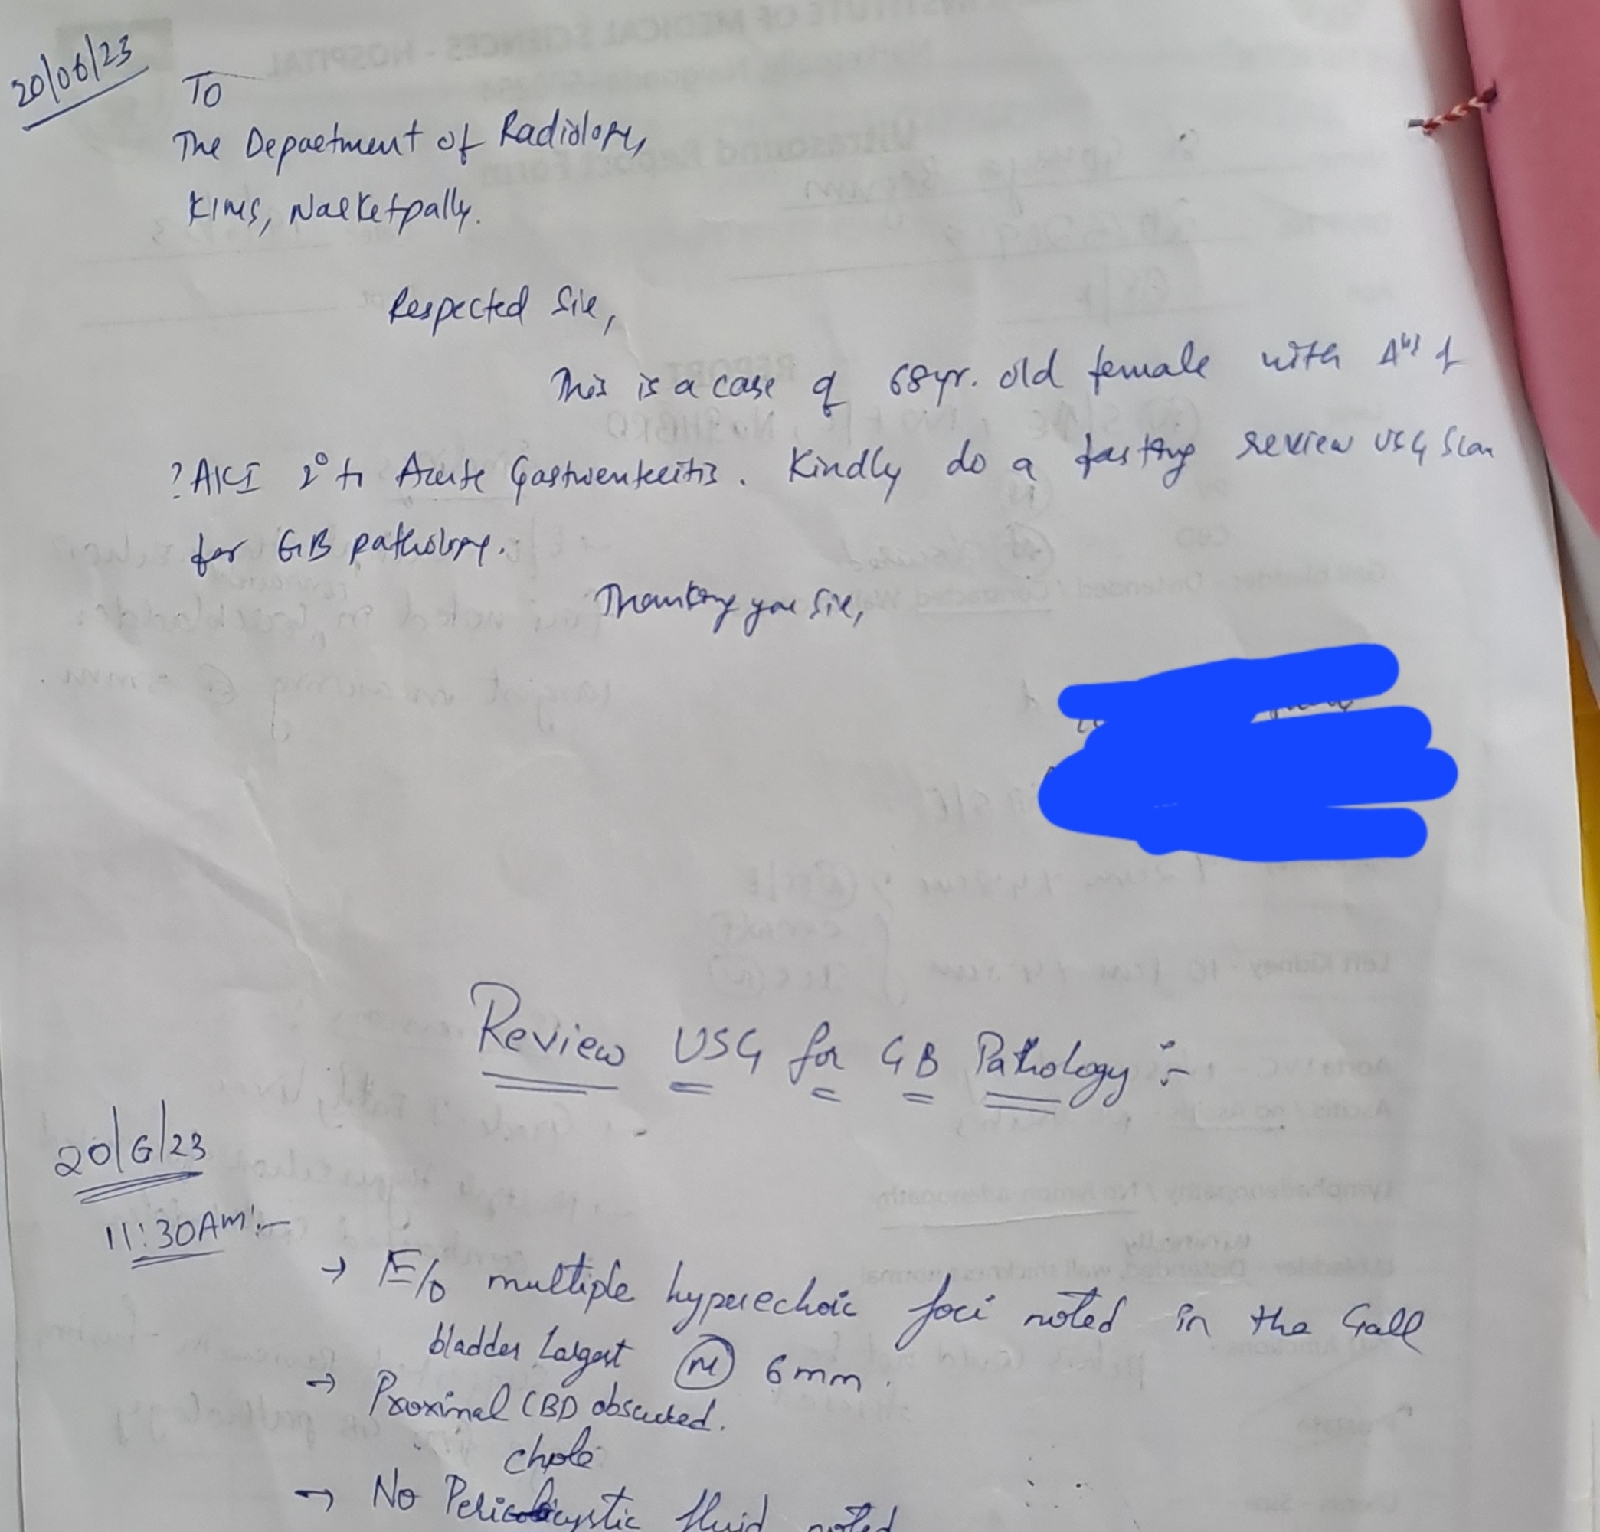 20/06/23
To
The Department of Radiology,
KIMS, Narketpally.
Respected Sir,
This is a case of 68yr. old female with
? AKI 2° to Acute Gastroenteritis. Kindly do a fasting review USG Scan
for GB pathology.
Thanking you Sir,
Review USG for GB Pathology :-
20/6/23
11:30AM :-
→ E/o multiple hyperechoic foci noted in the Gall
bladder Largest (M) 6mm.
→ Proximal CBD obscured.
chole
→ No Pericystic fluid noted